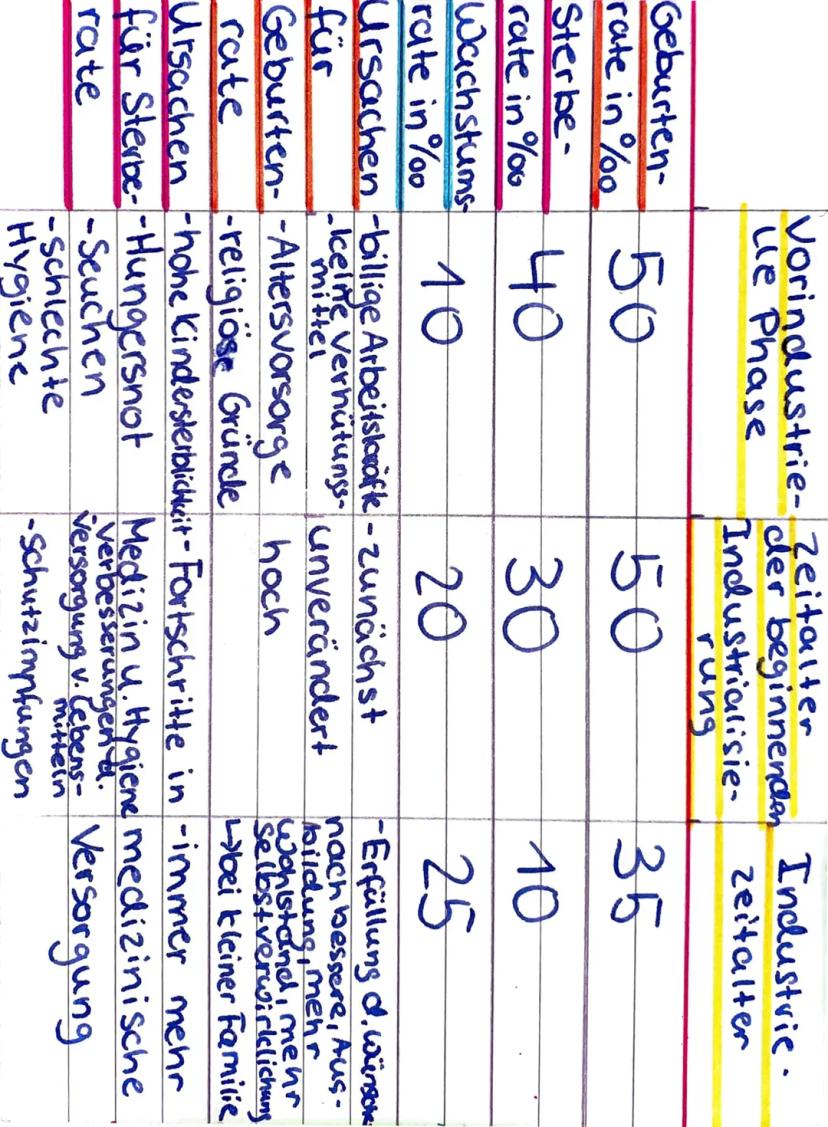 Vorindustrie-
lle Phase
Zeitalter
der beginnenden
Industrialisie-
rung
Industrie-
zeitalter
Geburten-
rate in ‰
50
50
35
Sterbe-
rate in ‰
40
30
10
Wachstums-
rate in ‰
10
20
25
Ursachen
für
Geburten-
rate
-billige Arbeitskräfte
-keine Verhütungs-
mittel
-Altersvorsorge
-religiöse Gründe
-zunächst
unverändert
hoch
-Erfüllung d. Wünsche
nach bessere, Aus-
bildung, mehr
Wohlstand, mehr
Selbstverwirklichung
↳bei kleiner Familie
Ursachen
für Sterbe-
rate
-hohe Kindersterblichkeit
-Hungersnot
-Seuchen
-schlechte
Hygiene
-Fortschritte in
Medizin u. Hygiene
Verbesserungen d.
Versorgung v. Lebens-
mitteln
-Schutzimpfungen
-immer mehr
medizinische
Versorgung